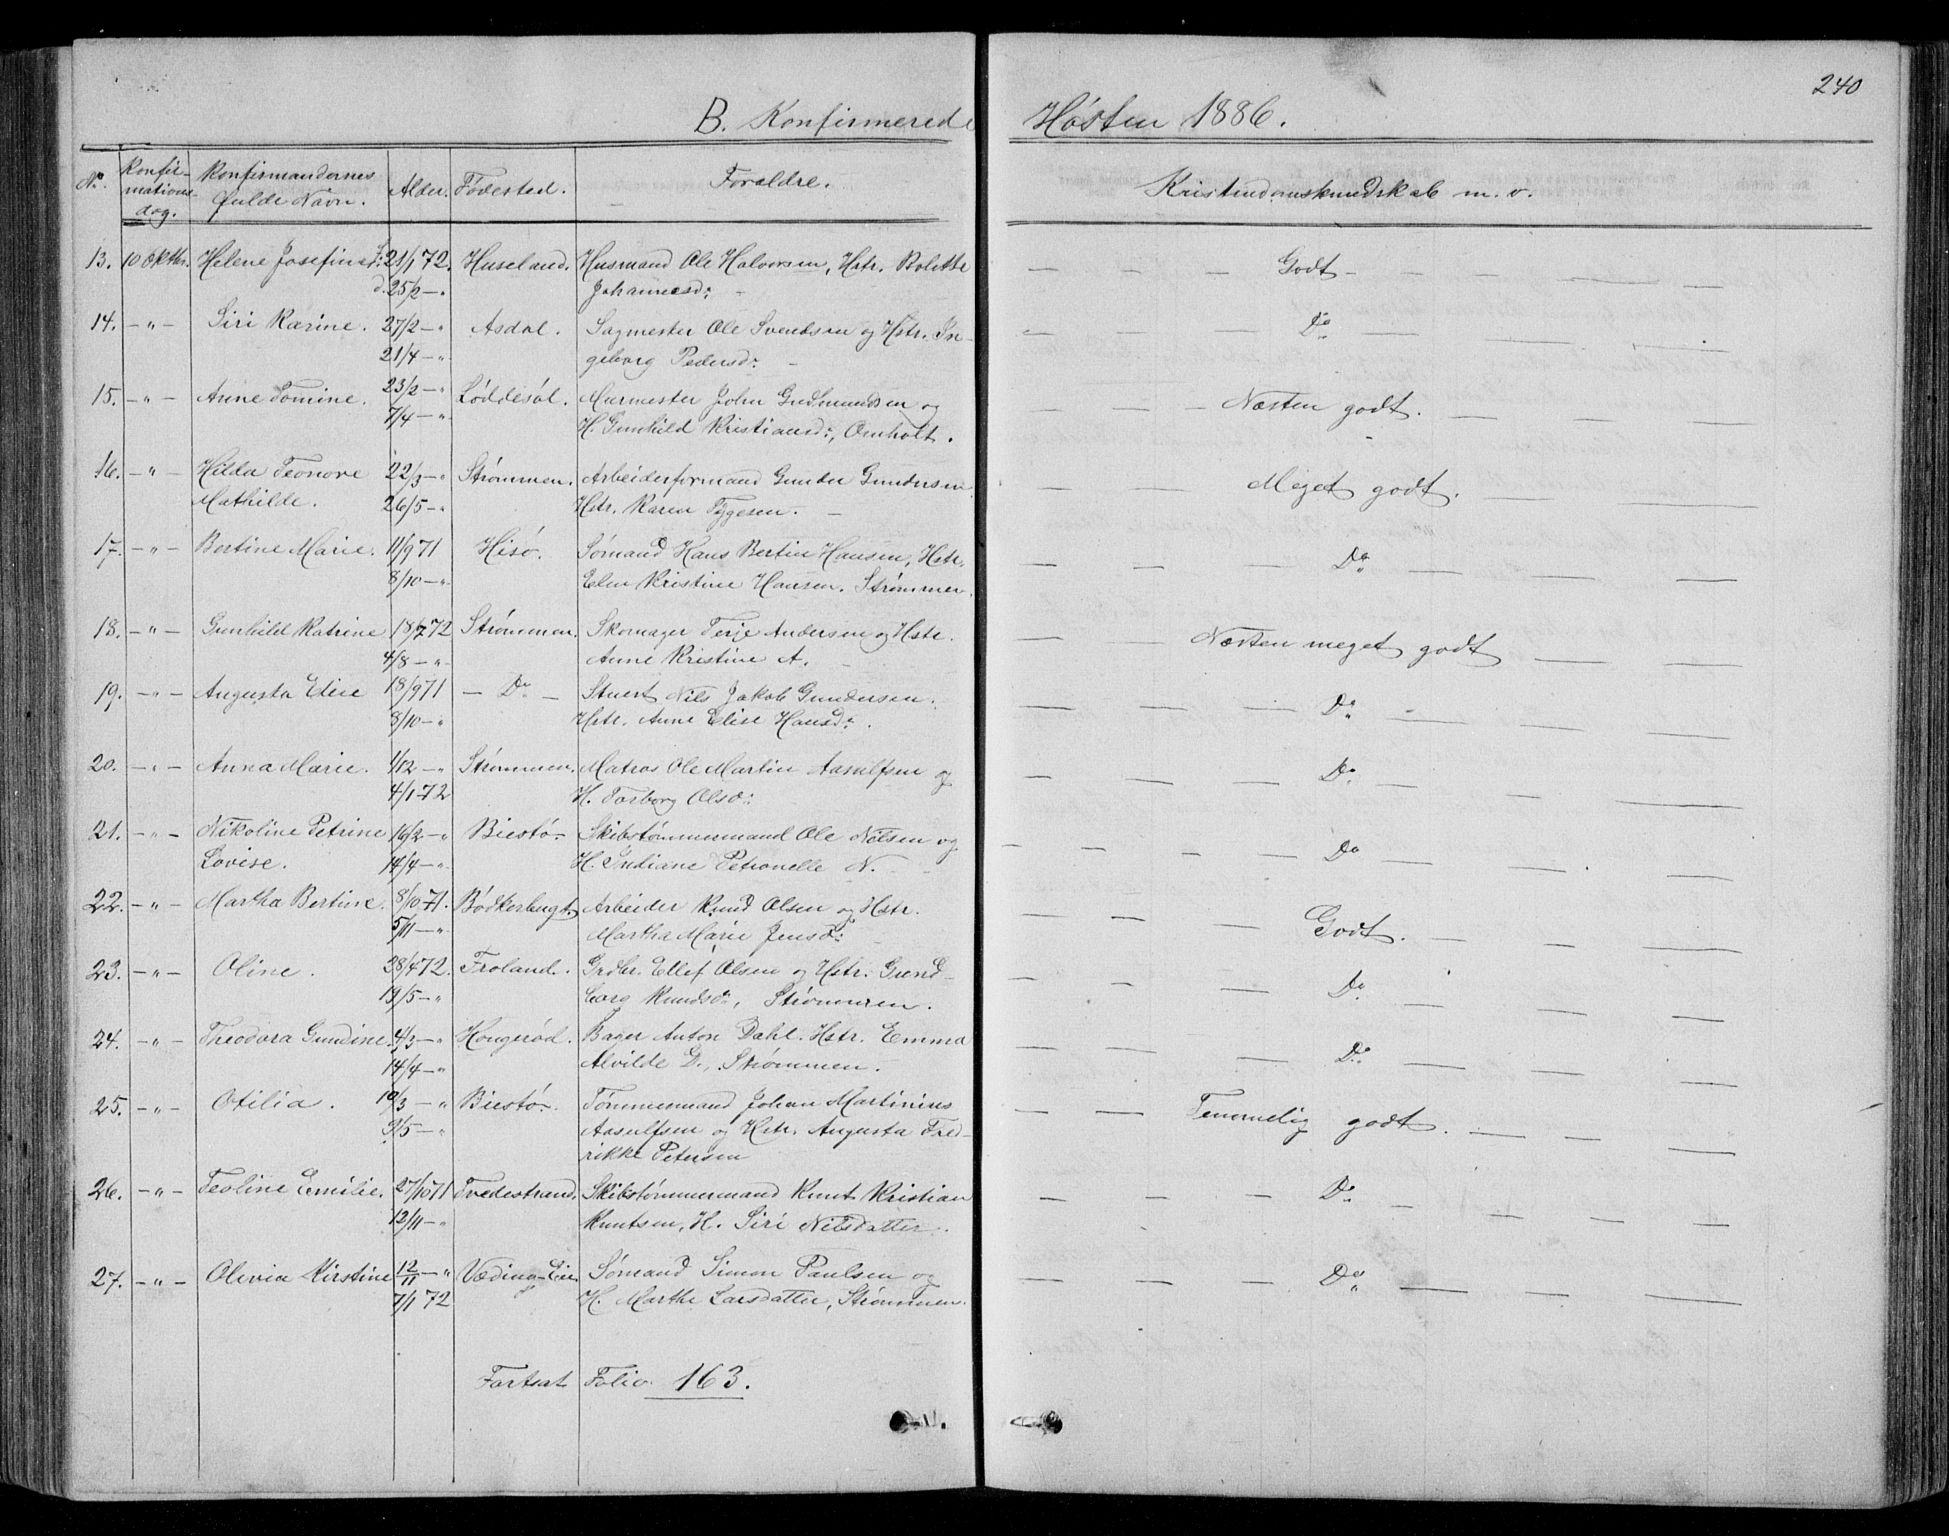 240
B. Konfirmerede Høsten 1886.
No. Konfirmations dag. Konfirmandernes Fulde Navn. Alder. Fødested. Forældre. Kristendomskundskab m. v.
13. 10 Oktbr. Helene Josefine f: 21/1 72. Huseland. Husmand Ole Halvorsen, Hstr. Bolette — — Godt — — — — —
d. 25/2 — " Johannesd: —
14. — " — Siri Karine. 27/2 — " Asdal. Sagmester Ole Svendsen og Hstr. In- — — Do — — —
21/4 — " geborg Pedersd: —
15. — " — Anne Tomine. 23/2 — " Løddesøl. Murmester John Gudmundsen og — — — Næsten godt. — — —
7/4 — " H. Gunhild Kristiansd:, Omholt.
16. — " — Hilda Teonore 22/3 — " Strømmen. Arbeiderformand Gunder Gundersen — — Meget godt. — — —
Mathilde. 26/5 — " Hstr. Karen Tygesen. —
17. — " — Bertine Marie. 11/9 71 Hisø. Sømand Hans Bertin Hansen, Hstr. — — — Do — — — —
8/10 — " Elen Kristine Hansen. Strømmen.
18. — " — Gunhild Katrine 18/7 72 Strømmen. Skomager Terje Andersen og Hstr. — — Næsten meget godt — — —
4/8 — " Anne Kristine A. —
19. — " — Augusta Elise 18/9 71 — Do — Stuert Nils Jakob Gundersen. — — — Do — — — —
8/10 — " Hstr. Anne Elise Hansd:.
20. — " — Anna Marie. 1/12 — " Strømmen. Matros Ole Martin Aasulfsen og — — — Do — — — —
4/1 72 H. Torborg Olsd:
21. — " — Nikoline Petrine 16/2 — " Biestø. Skibstømmermand Ole Nilsen og — — — — Do — — — —
Lovise. 14/4 — " H. Indiane Petronelle N. —
22. — " — Martha Bertine. 8/10 71. Bødkerbugt. Arbeider Knud Olsen og Hstr. — — — Godt. — — — —
5/11 — " Martha Marie Jensd:
23. — " — Oline. 28/4 72. Froland. Grdbr. Ellef Olsen og Hstr. Gund- — — — Do — — — —
19/5 — " borg Knudsd:, Strømmen.
24. — " — Theodora Gundine. 4/3 — " Hougerød. Bager Anton Dahl. Hstr. Emma — — — Do — — — —
14/4 — " Alvilde D., Strømmen.
25. — " — Otilia. 10/3 — " Biestø. Tømmermand Johan Martinius — — Temmelig godt. — — — —
9/5 — " Aasulfsen og Hstr. Augusta Fred-
rikke Petersen
26. — " — Teoline Emilie. 27/10 71 Tvedestrand. Skibstømmermand Knut Kristian — — — Do — — — —
12/11 — " Knutsen, H. Siri Nilsdatter.
27. — " — Olivia Kirstine 12/11 — " Væding-Eie Sømand Simon Paulsen og — — — Do — — — —
7/1 72 H. Marthe Larsdatter, Strømmen.
Fortsat Folio 163.